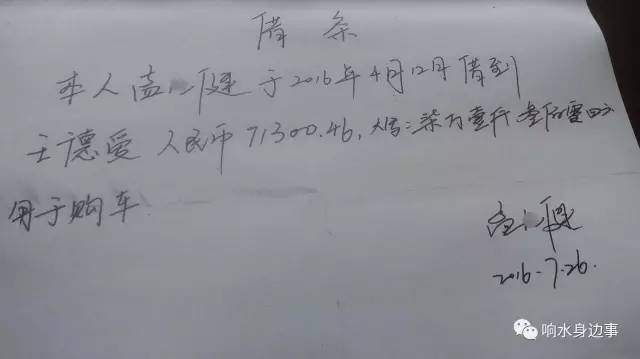 借条
本人孟 健于2016年4月12日借到
王德爱 人民币71300.46,大写:柒万壹仟叁佰零
用于购车
健
2016-7-26.
响水身边事